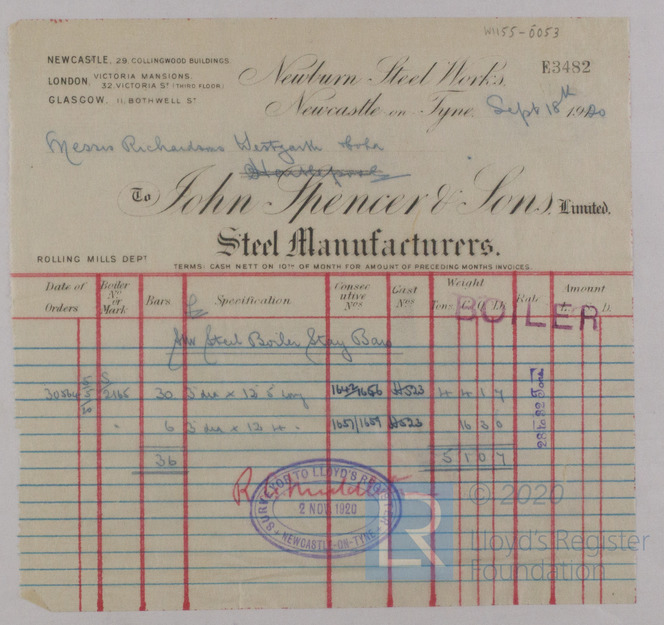 W1155-0053
NEWCASTLE, 29, COLLINGWOOD BUILDINGS.
LONDON, VICTORIA MANSIONS, 32, VICTORIA ST (THIRD FLOOR)
GLASGOW, 11, BOTHWELL ST
Newburn Steel Works,
E3482
Newcastle on Tyne, Sept 18th 1920
Messrs Richardsons Westgarth &
Hartlepool
To John Spencer & Sons, Limited.
Steel Manufacturers.
ROLLING MILLS DEPT
TERMS: CASH NETT ON 10TH OF MONTH FOR AMOUNT OF PRECEDING MONTHS INVOICES
Date of Orders Boiler No or Mark Bars Specification Consecutive Nos Cast Nos Weight Rate Amount
Tons D.
BOILER
Steel Boiler Stay Bars
2165 30 3" dia x 12' 5 long 1643/1656 H523 4 4 1 7
" 6 3" dia x 12 4 " 1657/1659 H523 16 3 0
28 to 32 Tons
36 5 1 0 7
SURVEYOR TO LLOYD'S REGISTER
2 NOV 1920
NEWCASTLE-ON-TYNE
LR
© 2020
Lloyd's Register
Foundation